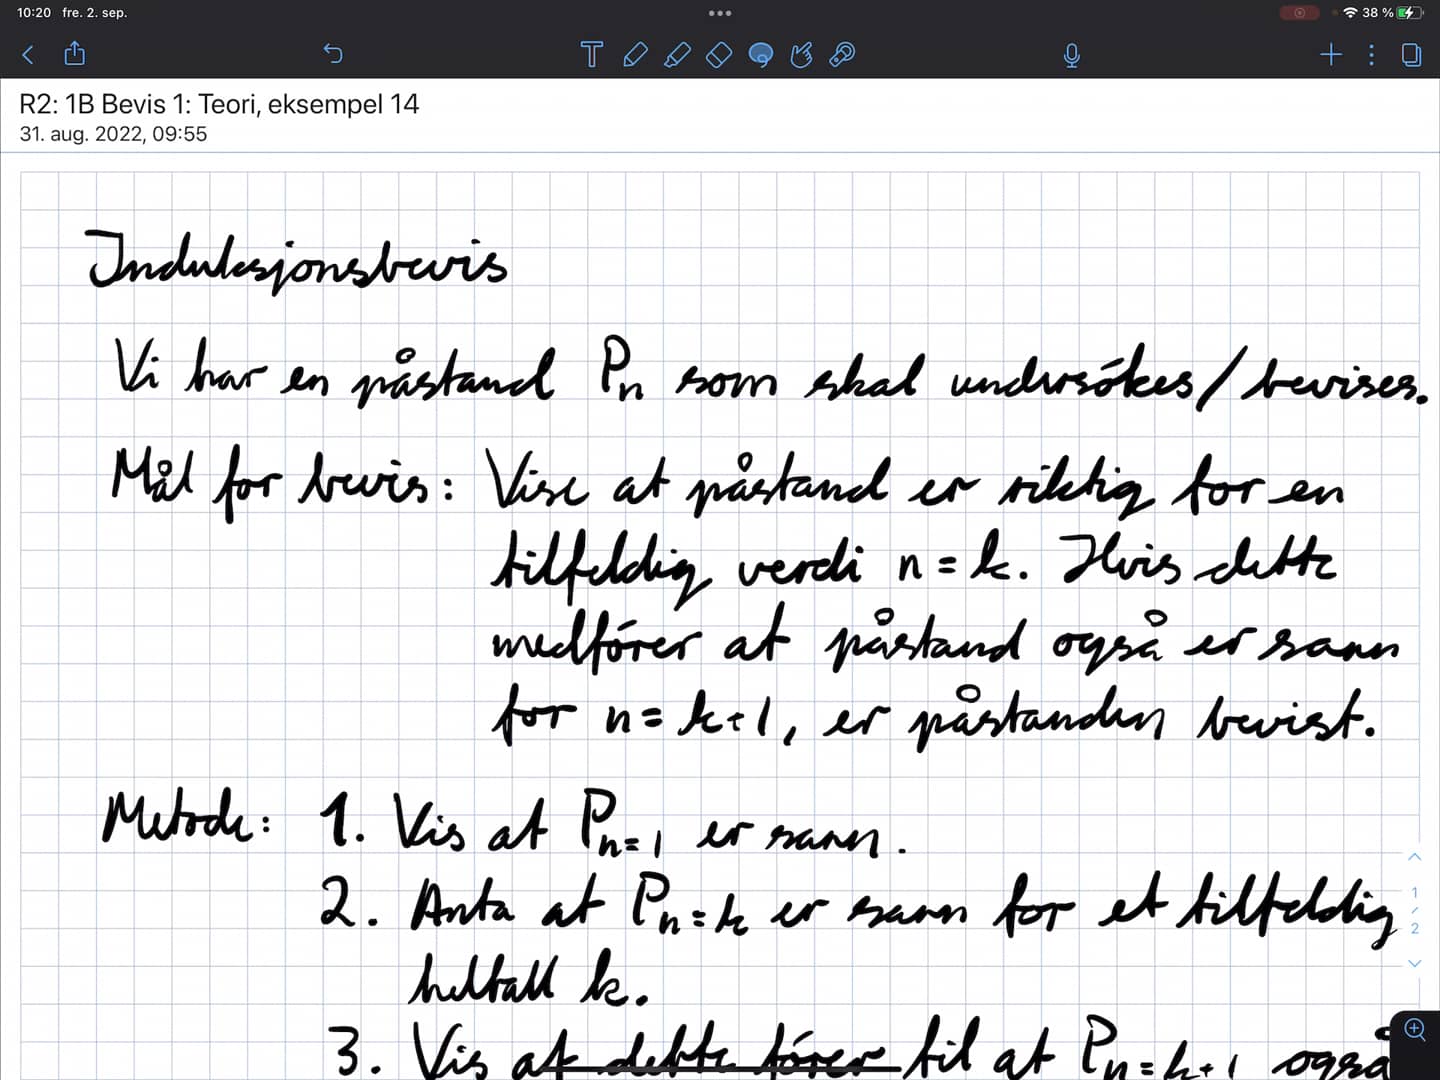 10:20 fre. 2. sep.
38 %
R2: 1B Bevis 1: Teori, eksempel 14
31. aug. 2022, 09:55
Induksjonsbevis
Vi har en påstand Pn som skal undersókes/bevises.
Mål for bevis: Vise at påstand er riktig for en
tilfeldig verdi n = k. Hvis dette
medfórer at påstand også er sann
for n = k+1, er påstanden bevist.
Metode: 1. Vis at Pn=1 er sann.
2. Anta at Pn=k er sann for et tilfeldig
heltall k.
3. Vis at dette fórer til at Pn=k+1 også
1
/
2